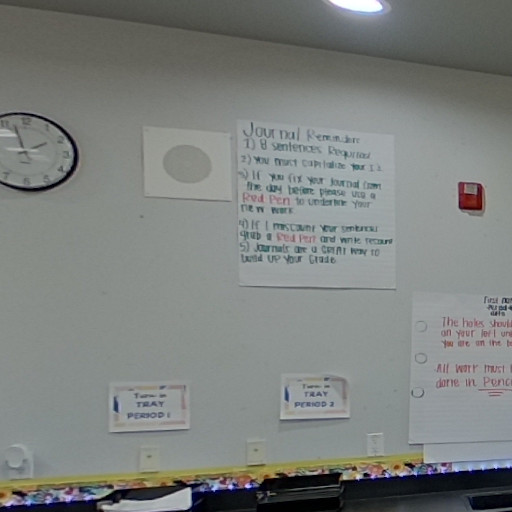 Journal Reminder:
1) 8 sentences Required
2) You must capitalize your I's
3) If you fix your Journal from
the day before please use a
Red Pen to underline your
new work
4) If I miscount your sentences
grab a Red Pen and write recount
5) Journals are a GREAT way to
build up your Grade.
Turn in
TRAY
PERIOD 1
Turn in
TRAY
PERIOD 2
First
date
The holes should
on your left
you are on the
All work must
done in Pencil